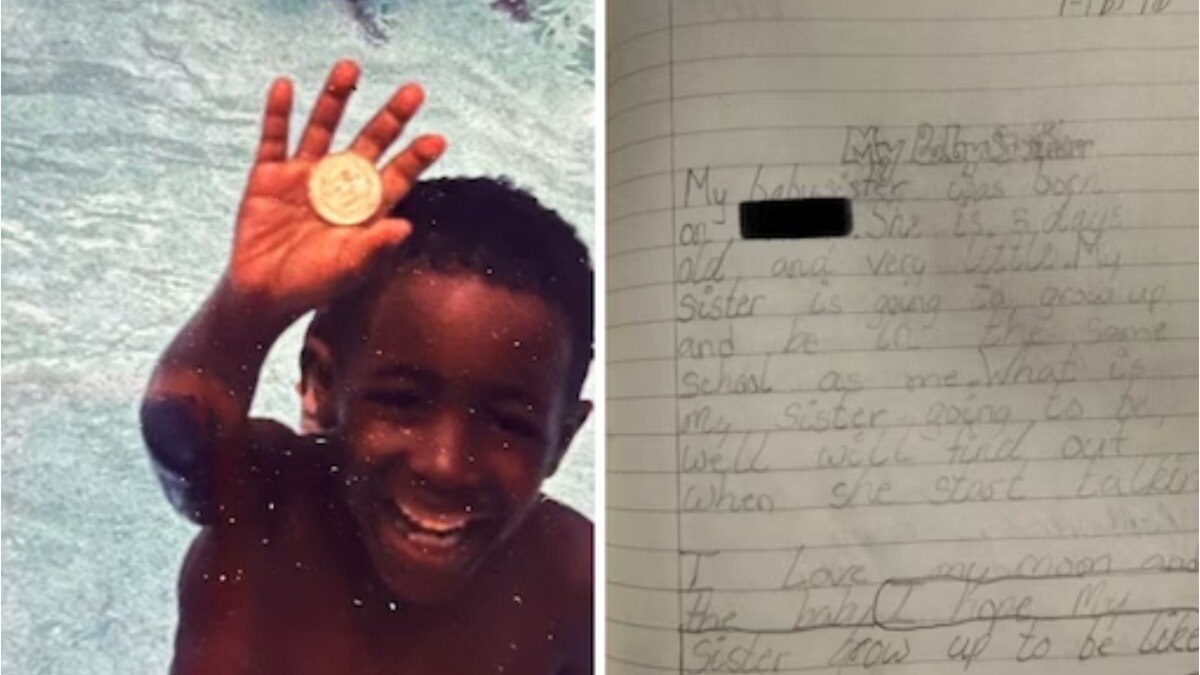 My Baby Sister
My baby sister was born
on She is 3 days
old, and very little. My
sister is going to grow up
and be in the same
school as me. What is
my sister going to be,
well will find out
when she start
I Love my mom and
the baby. I hope My
sister grow up to be like